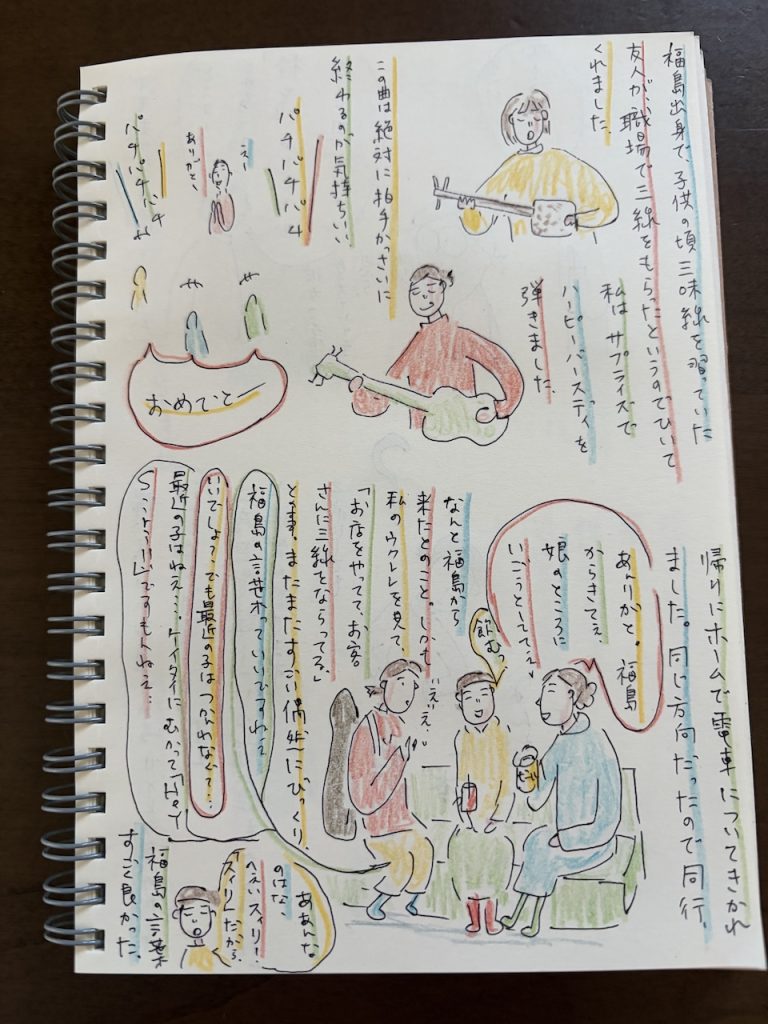 福島出身で、子供の頃三味線を習っていた
友人が、職場で三線をもらったというのでひいて
くれました。
私はサプライズで
ハーピーバースディを
弾きました。
この曲は絶対に拍手かっさいに
終わるのが気持ちいい
パチパチパチ
えー
ありがとー
パチパチパチ
や
や
おめでとー
帰りにホームで電車についてきかれ
ました。同じ方向だったので同行。
ありがと。福島
からきてぇ
娘のところに
いごうとしててぇ
飲むっ
いえいえ…
ビール
なんと福島から
来たとのこと。しかも
私のウクレレを見て、
「お店をやってて、お客
さんに三線をならってる」
と事。またまたすごい偶然にびっくり。
福島の言葉っていいですねぇ
いいでしょう、でも最近の子はつかわねくて…
最近の子はねえ…、ケイタイにむかって「Hey
Siri」ですもんねえ…
ああんな
のはな
へえいスィリー
スィリーだから
福島の言葉
すごく良かった。